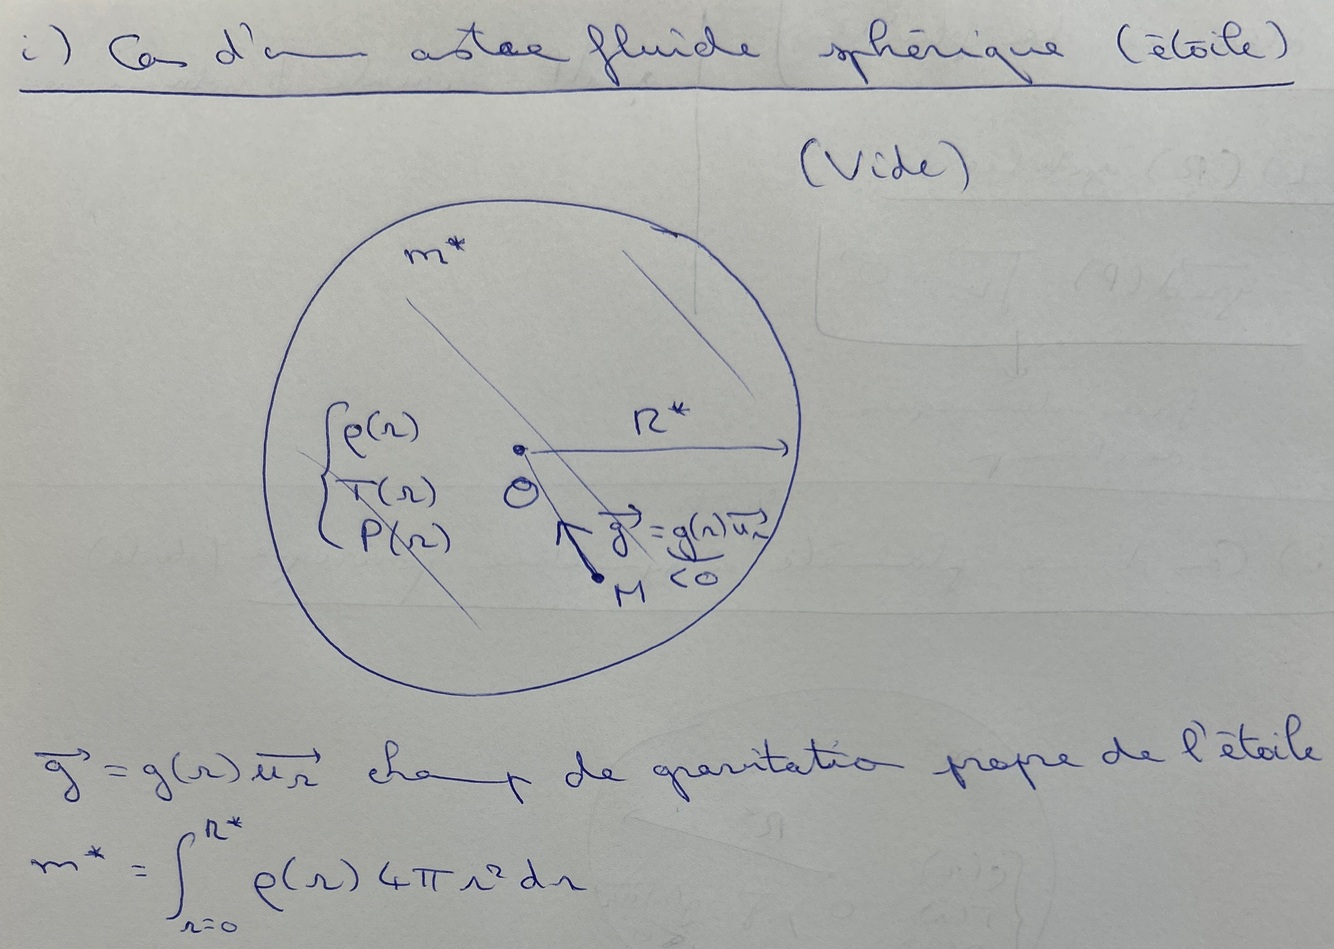 i) Cas d'un astre fluide sphérique (étoile)
(Vide)
m*
R*
ρ(r)
T(r)
P(r)
O
g⃗ = g(r) u⃗r
<0
M
g⃗ = g(r) u⃗r champ de gravitation propre de l'étoile
m* = ∫_{r=0}^{R*} ρ(r) 4π r² dr